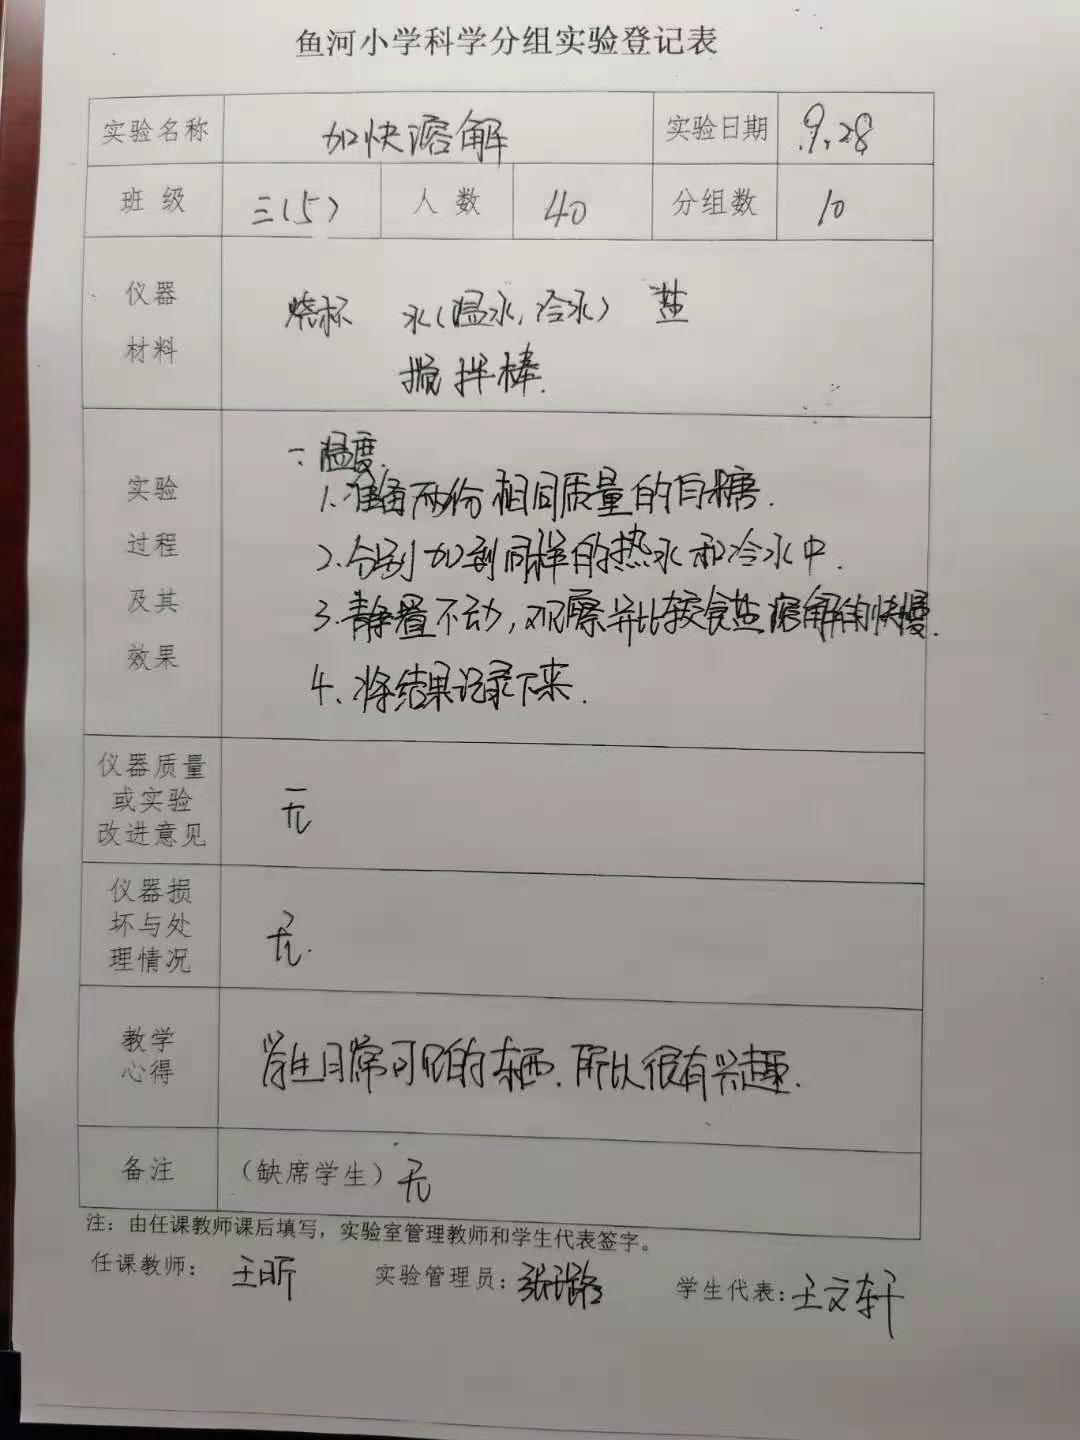 鱼河小学科学分组实验登记表
实验名称 加快溶解 实验日期 9.28
班 级 三(5) 人 数 40 分组数 10
仪器
材料
烧杯 水(温水,冷水) 盐
搅拌棒.
实验
过程
及其
效果
一:温度.
1.准备两份相同质量的白糖.
2.分别加到同样的热水和冷水中.
3.静置不动,观察并比较食盐溶解的快慢.
4.将结果记录下来.
仪器质量
或实验
改进意见
无
仪器损
坏与处
理情况
无.
教学
心得
学生日常可见的东西.所以很有兴趣.
备注 (缺席学生) 无
注:由任课教师课后填写,实验室管理教师和学生代表签字。
任课教师: 王昕 实验管理员: 学生代表: 王文轩